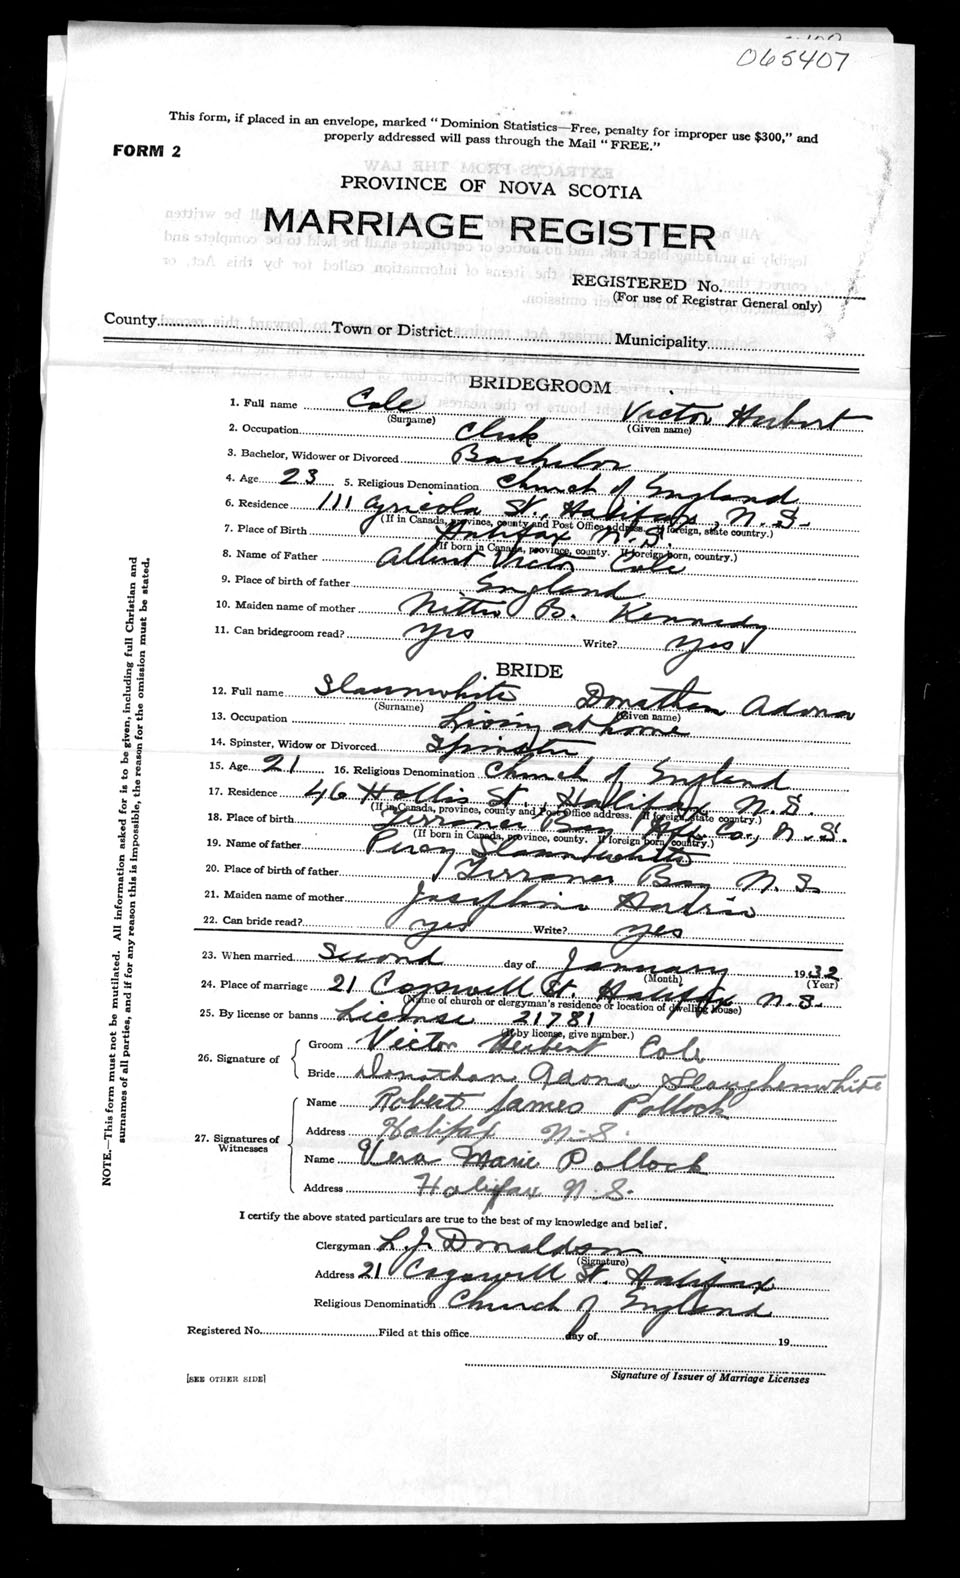 065407
This form, if placed in an envelope, marked "Dominion Statistics—Free, penalty for improper use $300," and
properly addressed will pass through the Mail "FREE."
FORM 2
PROVINCE OF NOVA SCOTIA
MARRIAGE REGISTER
REGISTERED No.
(For use of Registrar General only)
County Town or District Municipality
BRIDEGROOM
1. Full name Cole Victor Herbert
(Surname) (Given name)
2. Occupation Clerk
3. Bachelor, Widower or Divorced Bachelor
4. Age 23 5. Religious Denomination Church of England
6. Residence 111 Agricola St., Halifax, N.S.
(If in Canada, province, county and Post Office address. If foreign, state country.)
7. Place of Birth Halifax N.S.
(If born in Canada, province, county. If foreign born, country.)
8. Name of Father Albert Victor Cole
9. Place of birth of father England
10. Maiden name of mother B. Kennedy
11. Can bridegroom read? yes Write? yes
BRIDE
12. Full name Slaunwhite Donathan Adona
(Surname) (Given name)
13. Occupation Living at home
14. Spinster, Widow or Divorced Spinster
15. Age 21 16. Religious Denomination Church of England
17. Residence 46 Hollis St., Halifax N.S.
(If in Canada, province, county and Post Office address. If foreign, state country.)
18. Place of birth Bay Hfx Co., N.S.
(If born in Canada, province, county. If foreign born, country.)
19. Name of father Percy Slaunwhite
20. Place of birth of father Bay N.S
21. Maiden name of mother Josephine
22. Can bride read? yes Write? yes
23. When married Second day of January 1932
(Month) (Year)
24. Place of marriage 21 Cogswell St. Halifax N.S.
(Name of church or clergyman's residence or location of dwelling house)
25. By license or banns License 21781
(If by license, give number.)
26. Signature of Groom Victor Herbert Cole
Bride Donathan Adona Slaughenwhite
27. Signatures of Witnesses
Name Robert James Pollock
Address Halifax N.S.
Name Vera Marie Pollock
Address Halifax N.S.
I certify the above stated particulars are true to the best of my knowledge and belief.
Clergyman L.J. Donaldson
(Signature)
Address 21 Cogswell St. Halifax
Religious Denomination Church of England
Registered No. Filed at this office day of 19
Signature of Issuer of Marriage Licenses
[SEE OTHER SIDE]
NOTE.—This form must not be mutilated. All Information asked for is to be given, including full Christian and
surnames of all parties, and if for any reason this is impossible, the reason for the omission must be stated.